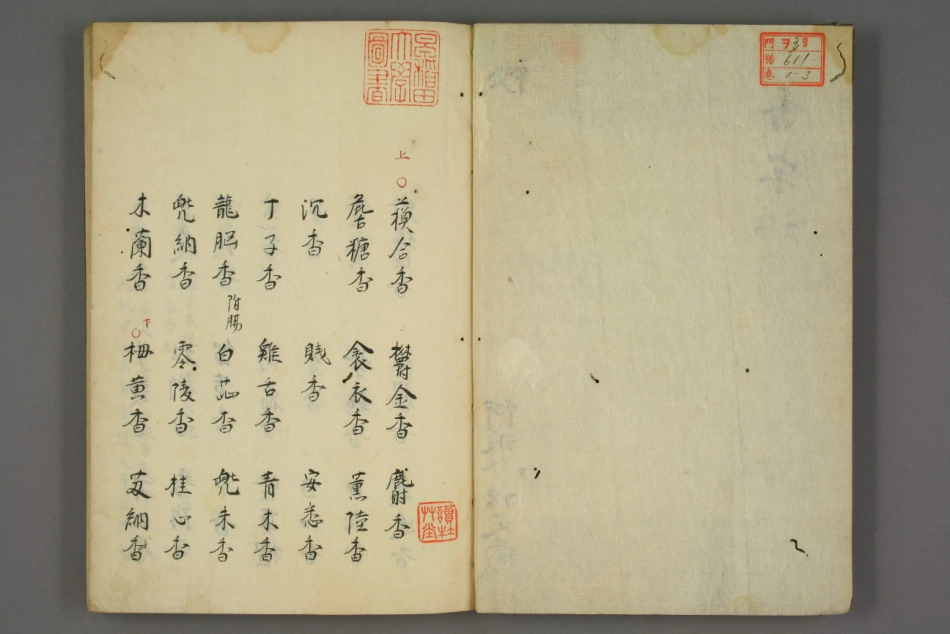 上
○蘓合香 欝金香 麝香
詹糖香 衾衣香 薫陸香
沉香 賎香 安悉香
丁子香 雞舌香 青木香
龍脳香 附腸 白芷香 兠末香
兠納香 零陵香 桂心香
木蘭香 下 ○栂薫香 艾納香
門 ヲ 9
號 611
卷 1-3